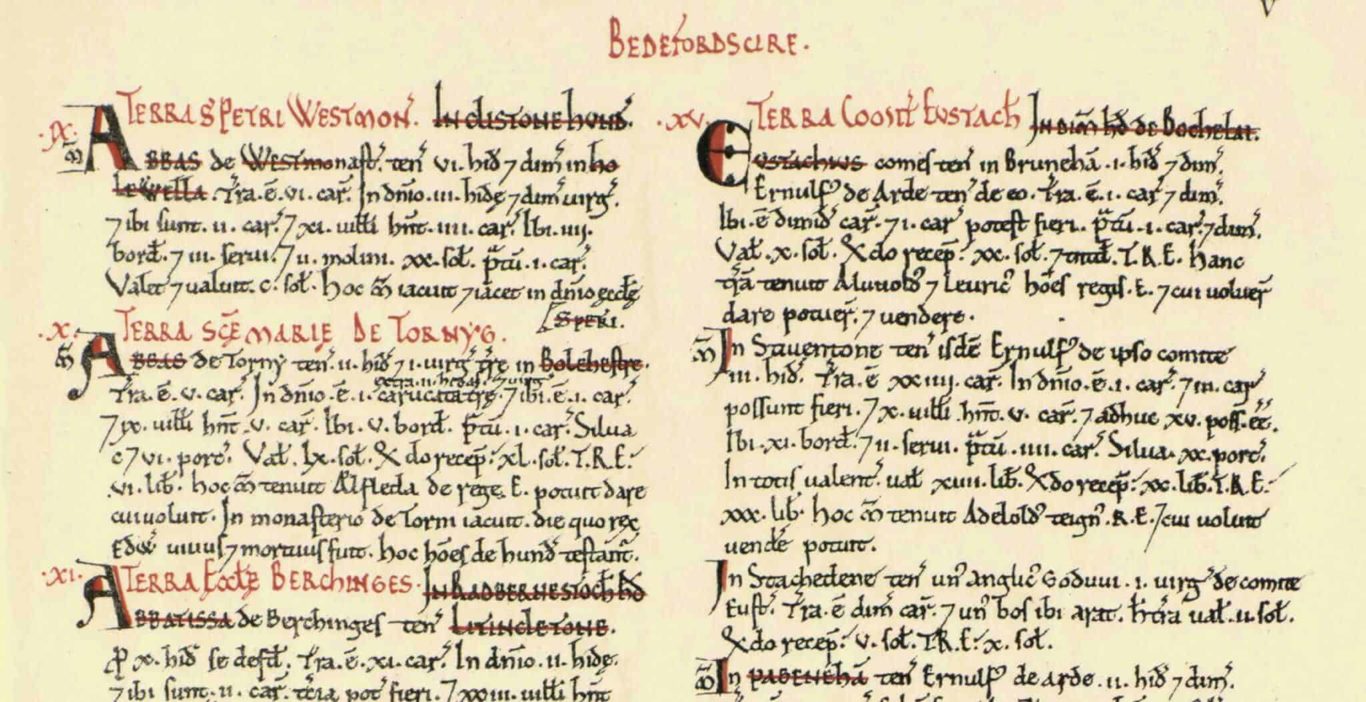 BEDEFORDSCIRE.
V
.IX. TERRA S PETRI WESTMON̄. IN CLISTONE HVND̄.
M̄ ABBAS de Westmonast̄. ten̄ .VI. hid̄ ⁊ dim̄ in ho
lewella. T̄ra. ē. VI. car̄. In dn̄io .III. hidę ⁊ dim̄ uirḡ.
⁊ ibi sunt .II. car̄. ⁊ XI. uitti hn̄t .IIII. car̄. Ibi .IIII.
bord̄. ⁊ III. serui. ⁊ II. molini. XX. sol̄. p̄tū .I. car̄.
Valet ⁊ ualuit .C. sol̄. Hoc M̄ iacuit ⁊ iacet in dn̄io ęcclę
S PETRI.
.X. TERRA SC̄E MARIE DE TORNYG.
M̄ ABBAS de Torny ten̄ .II. hid̄ ⁊ I. uirḡ tr̄e in Bolehestre.
T̄ra. ē. V. car̄. In dn̄io. ē. I. carucata tr̄ę ⁊ ibi. ē. I. car̄.
⁊ IX. uitti hn̄t .V. car̄. Ibi .V. bord̄. p̄tū .I. car̄. Silua
C ⁊ VI. porc̄. Val̄ .LX. sol̄. Qdo recep̄: XL. sol̄. T.R.E:
.VI. lib̄. Hoc M̄ tenuit Ælfleda de rege. E. potuit dare
cui uoluit. In monasterio de Torni iacuit. die quo rex
Edw̄ uiuus ⁊ mortuus fuit. hoc hōēs de hund̄ testant̄.
.XI. TERRA ECCLĘ BERCHINGES. IN RADBERNESTOCH HD̄
ABBATISSA de Berchinges ten̄ LITINCLETONE.
ꝓ X. hid̄ se defd̄. T̄ra. ē. XI. car̄. In dn̄io .II. hidę.
⁊ ibi sunt .II. car̄. t̄cia pot̄ fieri. ⁊ XXIII. uitti hn̄t
.XV. TERRA COMIT̄ EUSTACH̄ IN DIM̄ HD̄ de Bochelai.
EVSTACHIVS comes ten̄ in Brunehā .I. hid̄ ⁊ dim̄.
Ernulf̄ de Arde ten̄ de eo. T̄ra. ē. I. car̄ ⁊ dim̄.
Ibi. ē dimid̄ car̄. ⁊ I. car̄ potest fieri. p̄tū .I. car̄. ⁊ dim̄.
Val̄ .X. sol̄. Qdo recep̄: XX. sol̄. ⁊ tn̄td̄. T.R.E. Hanc
tr̄ā tenuit Aluuold̄ ⁊ Leuric̄ hōēs regis. E. ⁊ cui uoluer̄
dare potuer̄. ⁊ uendere.
M̄ In Stauentone ten̄ isdē Ernulf̄ de ipso comite
.III. hid̄. T̄ra. ē XXIIII. car̄. In dn̄io. ē. I. car̄. ⁊ III. car̄
possunt fieri. ⁊ X. uitti hn̄t .V. car̄. ⁊ adhuc XV. poss̄. eē.
Ibi .XI. bord̄. ⁊ II. serui. p̄tū .IIII. car̄. Silua .XX. porc̄.
In totis ualent̄. ual̄ XVIII. lib̄. Qdo recep̄: XX. lib̄. T.R.E:
XXX. lib̄. Hoc M̄ tenuit Adelold̄ teign̄. R.E. ⁊ cui uoluit
uendē potuit.
In Stachedene ten̄ un̄ anglic̄ Goduui .I. uirḡ de comite
Eust̄. T̄ra. ē dim̄ car̄. ⁊ un̄ bos ibi arat. H tr̄a ual̄ .II. sol̄.
Qdo recep̄: V. sol̄. T.R.E: X. sol̄.
M̄ In PABENEHĀ ten̄ Ernulf̄ de arde .II. hid̄ ⁊ dim̄.